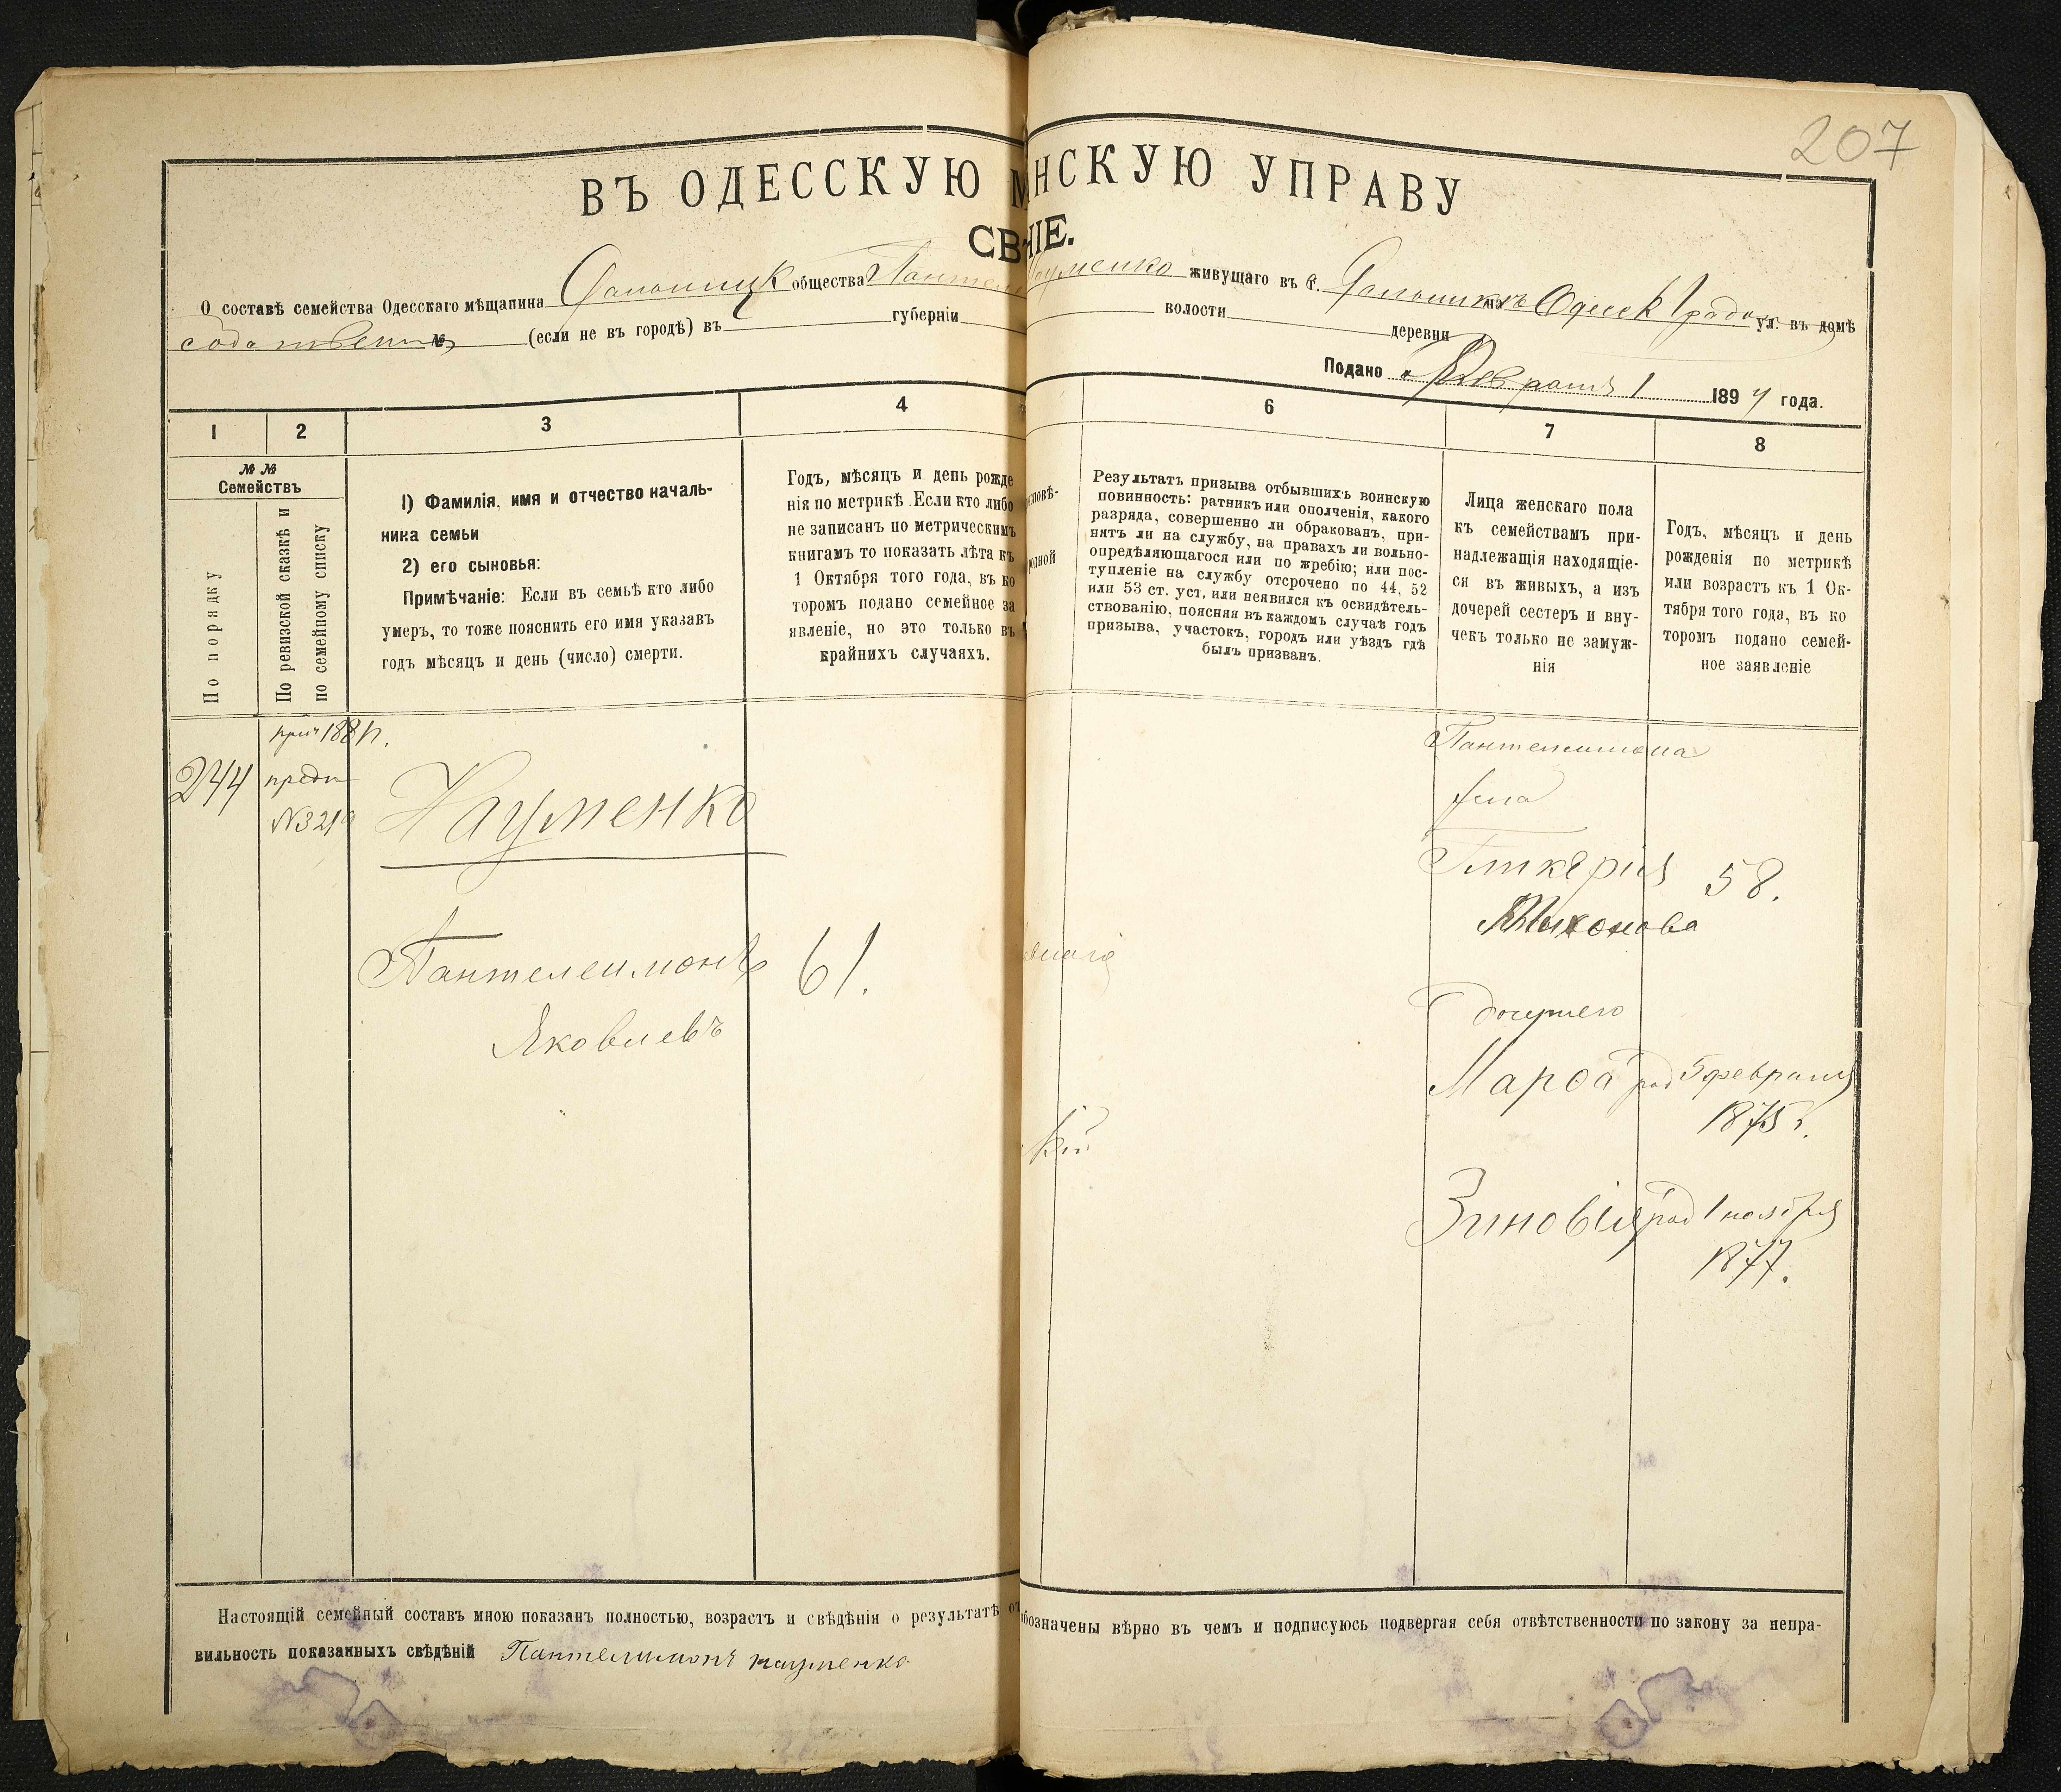 207
ВЪ ОДЕССКУЮ М НСКУЮ УПРАВУ
СВ НІЕ.
О составѣ семейства Одесскаго мѣщанина общества Пантеле Науменко живущаго въ г. на Одесск Градо ул. въ домѣ
№ (если не въ городѣ) въ губерніи волости деревни
Подано Февраля 1 1894 года.
1 2 3 4 6 7 8
№ №
Семействъ
По порядку
По ревизской сказкѣ и
по семейному списку
1) Фамилія, имя и отчество началь-
ника семьи
2) его сыновья:
Примѣчаніе: Если въ семьѣ кто либо
умеръ, то тоже пояснить его имя указавъ
годъ мѣсяцъ и день (число) смерти.
Годъ, мѣсяцъ и день рожде
нія по метрикѣ. Если кто либо
не записанъ по метрическимъ
книгамъ то показать лѣта къ
1 Октября того года, въ ко
торомъ подано семейное за
явленіе, но это только въ
крайнихъ случаяхъ.
Результатъ призыва отбывшихъ воинскую
повинность: ратникъ или ополченія, какого
разряда, совершенно ли обракованъ, при-
нятъ ли на службу, на правахъ ли вольно-
опредѣляющагося или по жребію; или пос-
тупленіе на службу отсрочено по 44, 52
или 53 ст. уст. или неявился къ освидѣтель-
ствованію, поясняя въ каждомъ случаѣ годъ
призыва, участокъ, городъ или уѣздъ гдѣ
былъ призванъ.
Лица женскаго пола
къ семействамъ при-
надлежащія находящіе-
ся въ живыхъ, а изъ
дочерей сестеръ и вну-
чекъ только не замуж-
нія
Годъ, мѣсяцъ и день
рожденія по метрикѣ
или возрастъ къ 1 Ок-
тября того года, въ ко
торомъ подано семей-
ное заявленіе
244
№3219
Науменко
Пантелеимонъ 61.
Яковлевъ
Пантелеимона
жена
Гликерія 58.
дочери его
Марѳа род 5 февраля
1875 г.
Зиновія род 1 ноября
1877.
Настоящій семейный составъ мною показанъ полностью, возрастъ и свѣдѣнія о результатѣ от бозначены вѣрно въ чемъ и подписуюсь подвергая себя отвѣтственности по закону за непра-
вильность показанныхъ свѣдѣній Пантелимонъ науменко